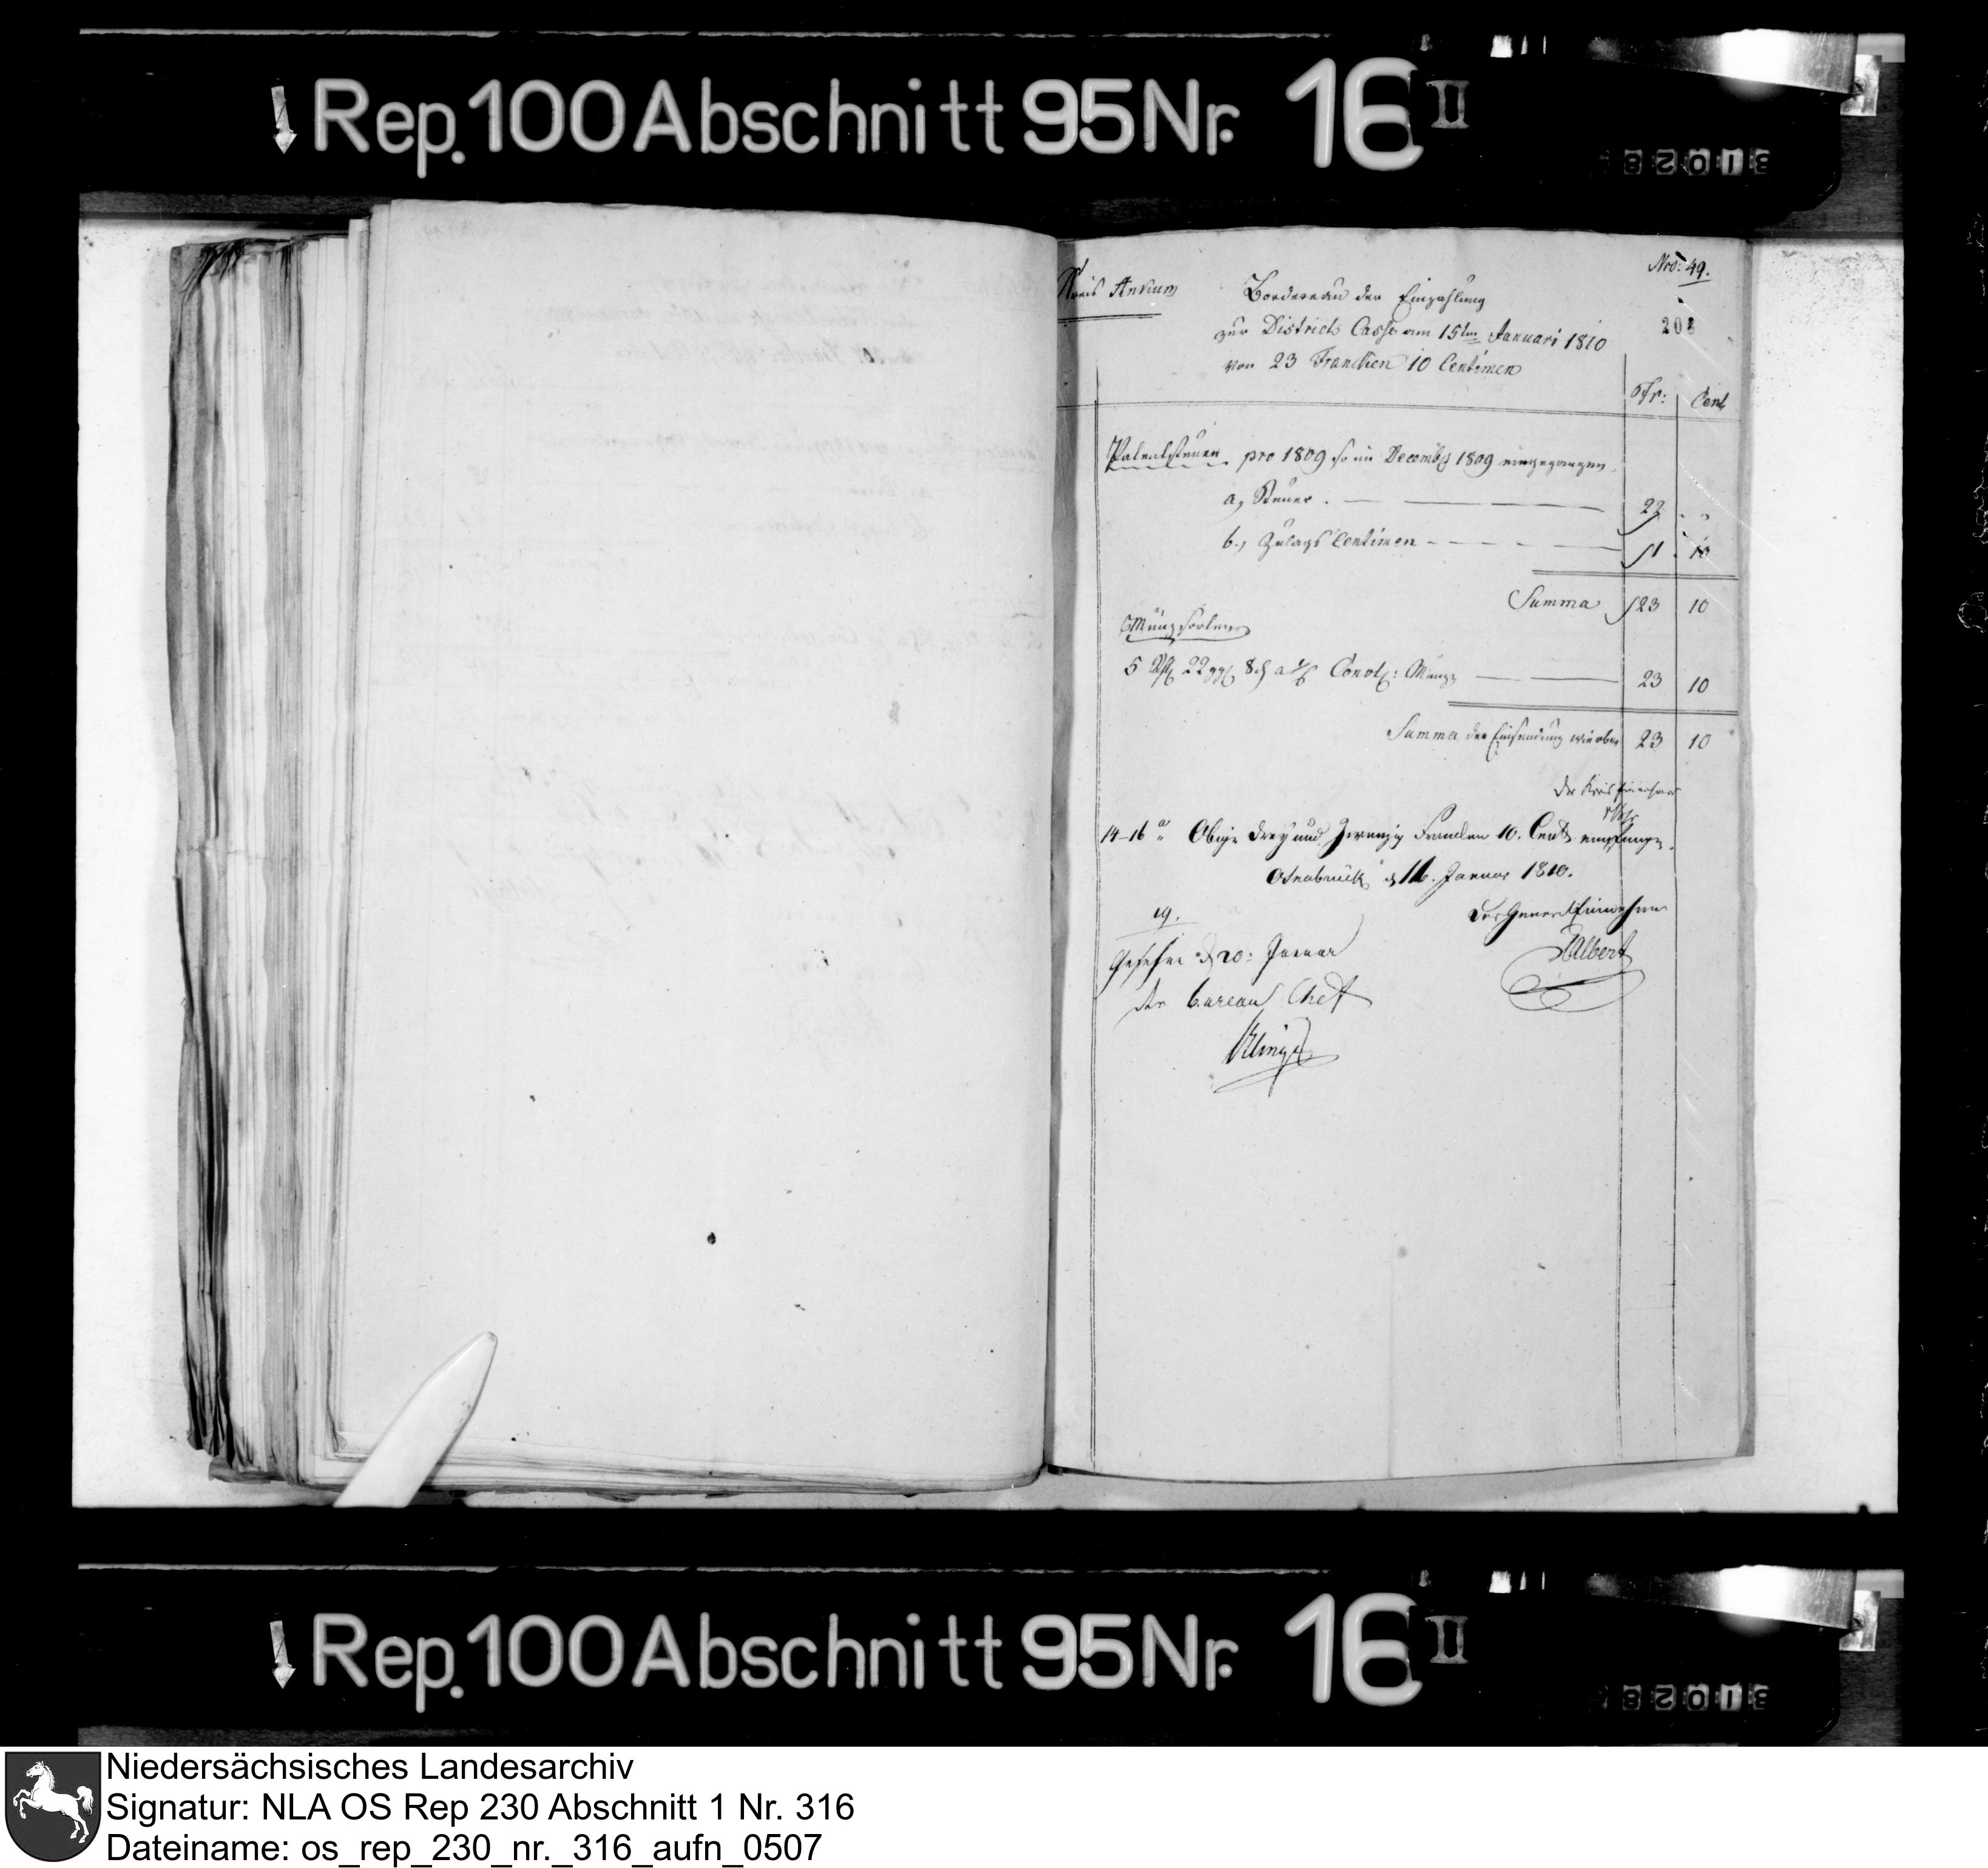 Rep. 100 Abschnitt 95 Nr. 16 II
31028
Nro: 49.
Kreis Ankum
Bordereau der Einzahlung
208
zur Districts Casse am 15ten Januari 1810
von 23 Francken 10 Centimen
Fr: Cent
Patentsteuer pro 1809 so im Decembr 1809 eingegangen.
a, Steuer. 22 "
b., Zulags Centimen 1 10
Summa 23 10
Müntzsorten
5 Rthl 22 ggl 8 d a 1/6 Convt: Müntz 23 10
Summa der Einsendung wie oben 23 10
Der Kreis Einnehmer
14-16 Obige drey und zwanzig Francken 10. Cent empfangen.
Osnabrück d 16. Januar 1810.
19.
Der General Einnehmer
Gesehen d 20: Januar
Albert
der bureau Chef
Rep. 100 Abschnitt 95 Nr. 16 II
31028
Niedersächsisches Landesarchiv
Signatur: NLA OS Rep 230 Abschnitt 1 Nr. 316
Dateiname: os_rep_230_nr._316_aufn_0507